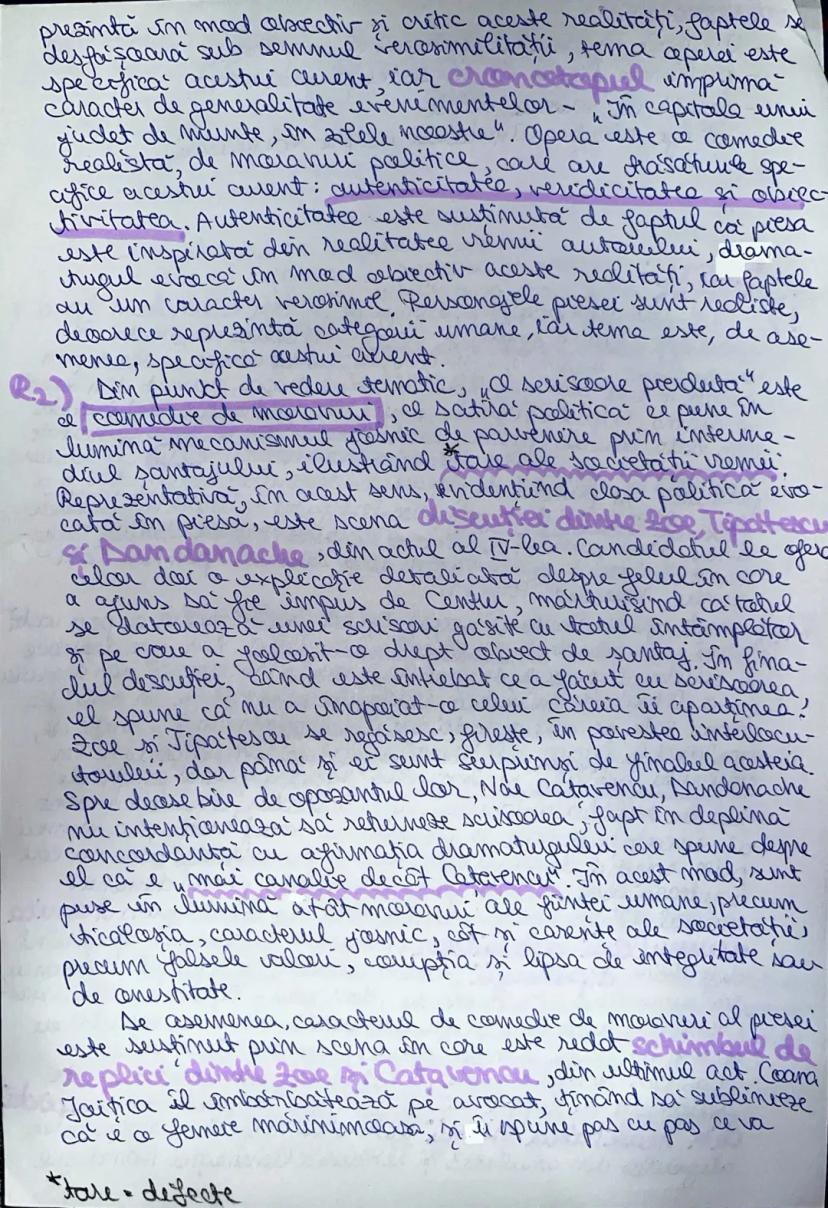 prezintă în mod obiectiv și critic aceste realități, faptele se
desfășoară sub semnul verosimilității, tema operei este
specifică acestui curent, iar cronotopul imprimă
caracter de generalitate evenimentelor - „În capitala unui
județ de munte, în zilele noastre". Opera este o comedie
realistă, de moravuri politice, care are trăsăturile spe-
cifice acestui curent: autenticitatea, veridicitatea și obiec-
tivitatea. Autenticitatea este susținută de faptul că piesa
este inspirată din realitatea vremii autorului, drama-
turgul evocă în mod obiectiv aceste realități, iar faptele
au un caracter verosimil. Personajele piesei sunt realiste,
deoarece reprezintă categorii umane, iar tema este, de ase-
menea, specifică acestui curent.
R2) Din punct de vedere tematic, „O scrisoare pierdută" este
o comedie de moravuri, o satiră politică ce pune în
lumină mecanismul josnic de parvenire prin interme-
diul șantajului, ilustrând *tare ale societății vremii.
Reprezentativă, în acest sens, evidențiind clasa politică evo-
cată în piesă, este scena discuției dintre Zoe, Tipătescu
și Dandanache, din actul al IV-lea. Candidatul le oferă
celor doi o explicație detaliată despre felul în care
a ajuns să fie impus de Centru, mărturisind că totul
se datorează unei scrisori găsite cu totul întâmplător
și pe care a folosit-o drept obiect de șantaj. În fina-
lul discuției, când este întrebat ce a făcut cu scrisoarea
el spune că nu a înapoiat-o celui căreia îi aparținea!
Zoe și Tipătescu se regăsesc, firește, în povestea interlocu-
torului, dar până și ei sunt surprinși de finalul acesteia.
Spre deosebire de opozantul lor, Nae Cațavencu, Dandanache
nu intenționează să returneze scrisoarea, fapt în deplină
concordanță cu afirmația dramaturgului care spune despre
el că e „mai canalie decât Cațavencu". În acest mod, sunt
puse în lumină atât moravuri ale ființei umane, precum
ticăloșia, caracterul josnic, cât și carențe ale societății,
precum falsele valori, corupția și lipsa de integritate sau
de onestitate.
De asemenea, caracterul de comedie de moravuri al piesei
este susținut prin scena în care este redat schimbul de
replici dintre Zoe și Cațavencu, din ultimul act. Coana
Joițica îl îmbărbătează pe avocat, ținând să sublinieze
că e o femeie mărinimoasă, și îi spune pas cu pas ce va
*tare = defecte